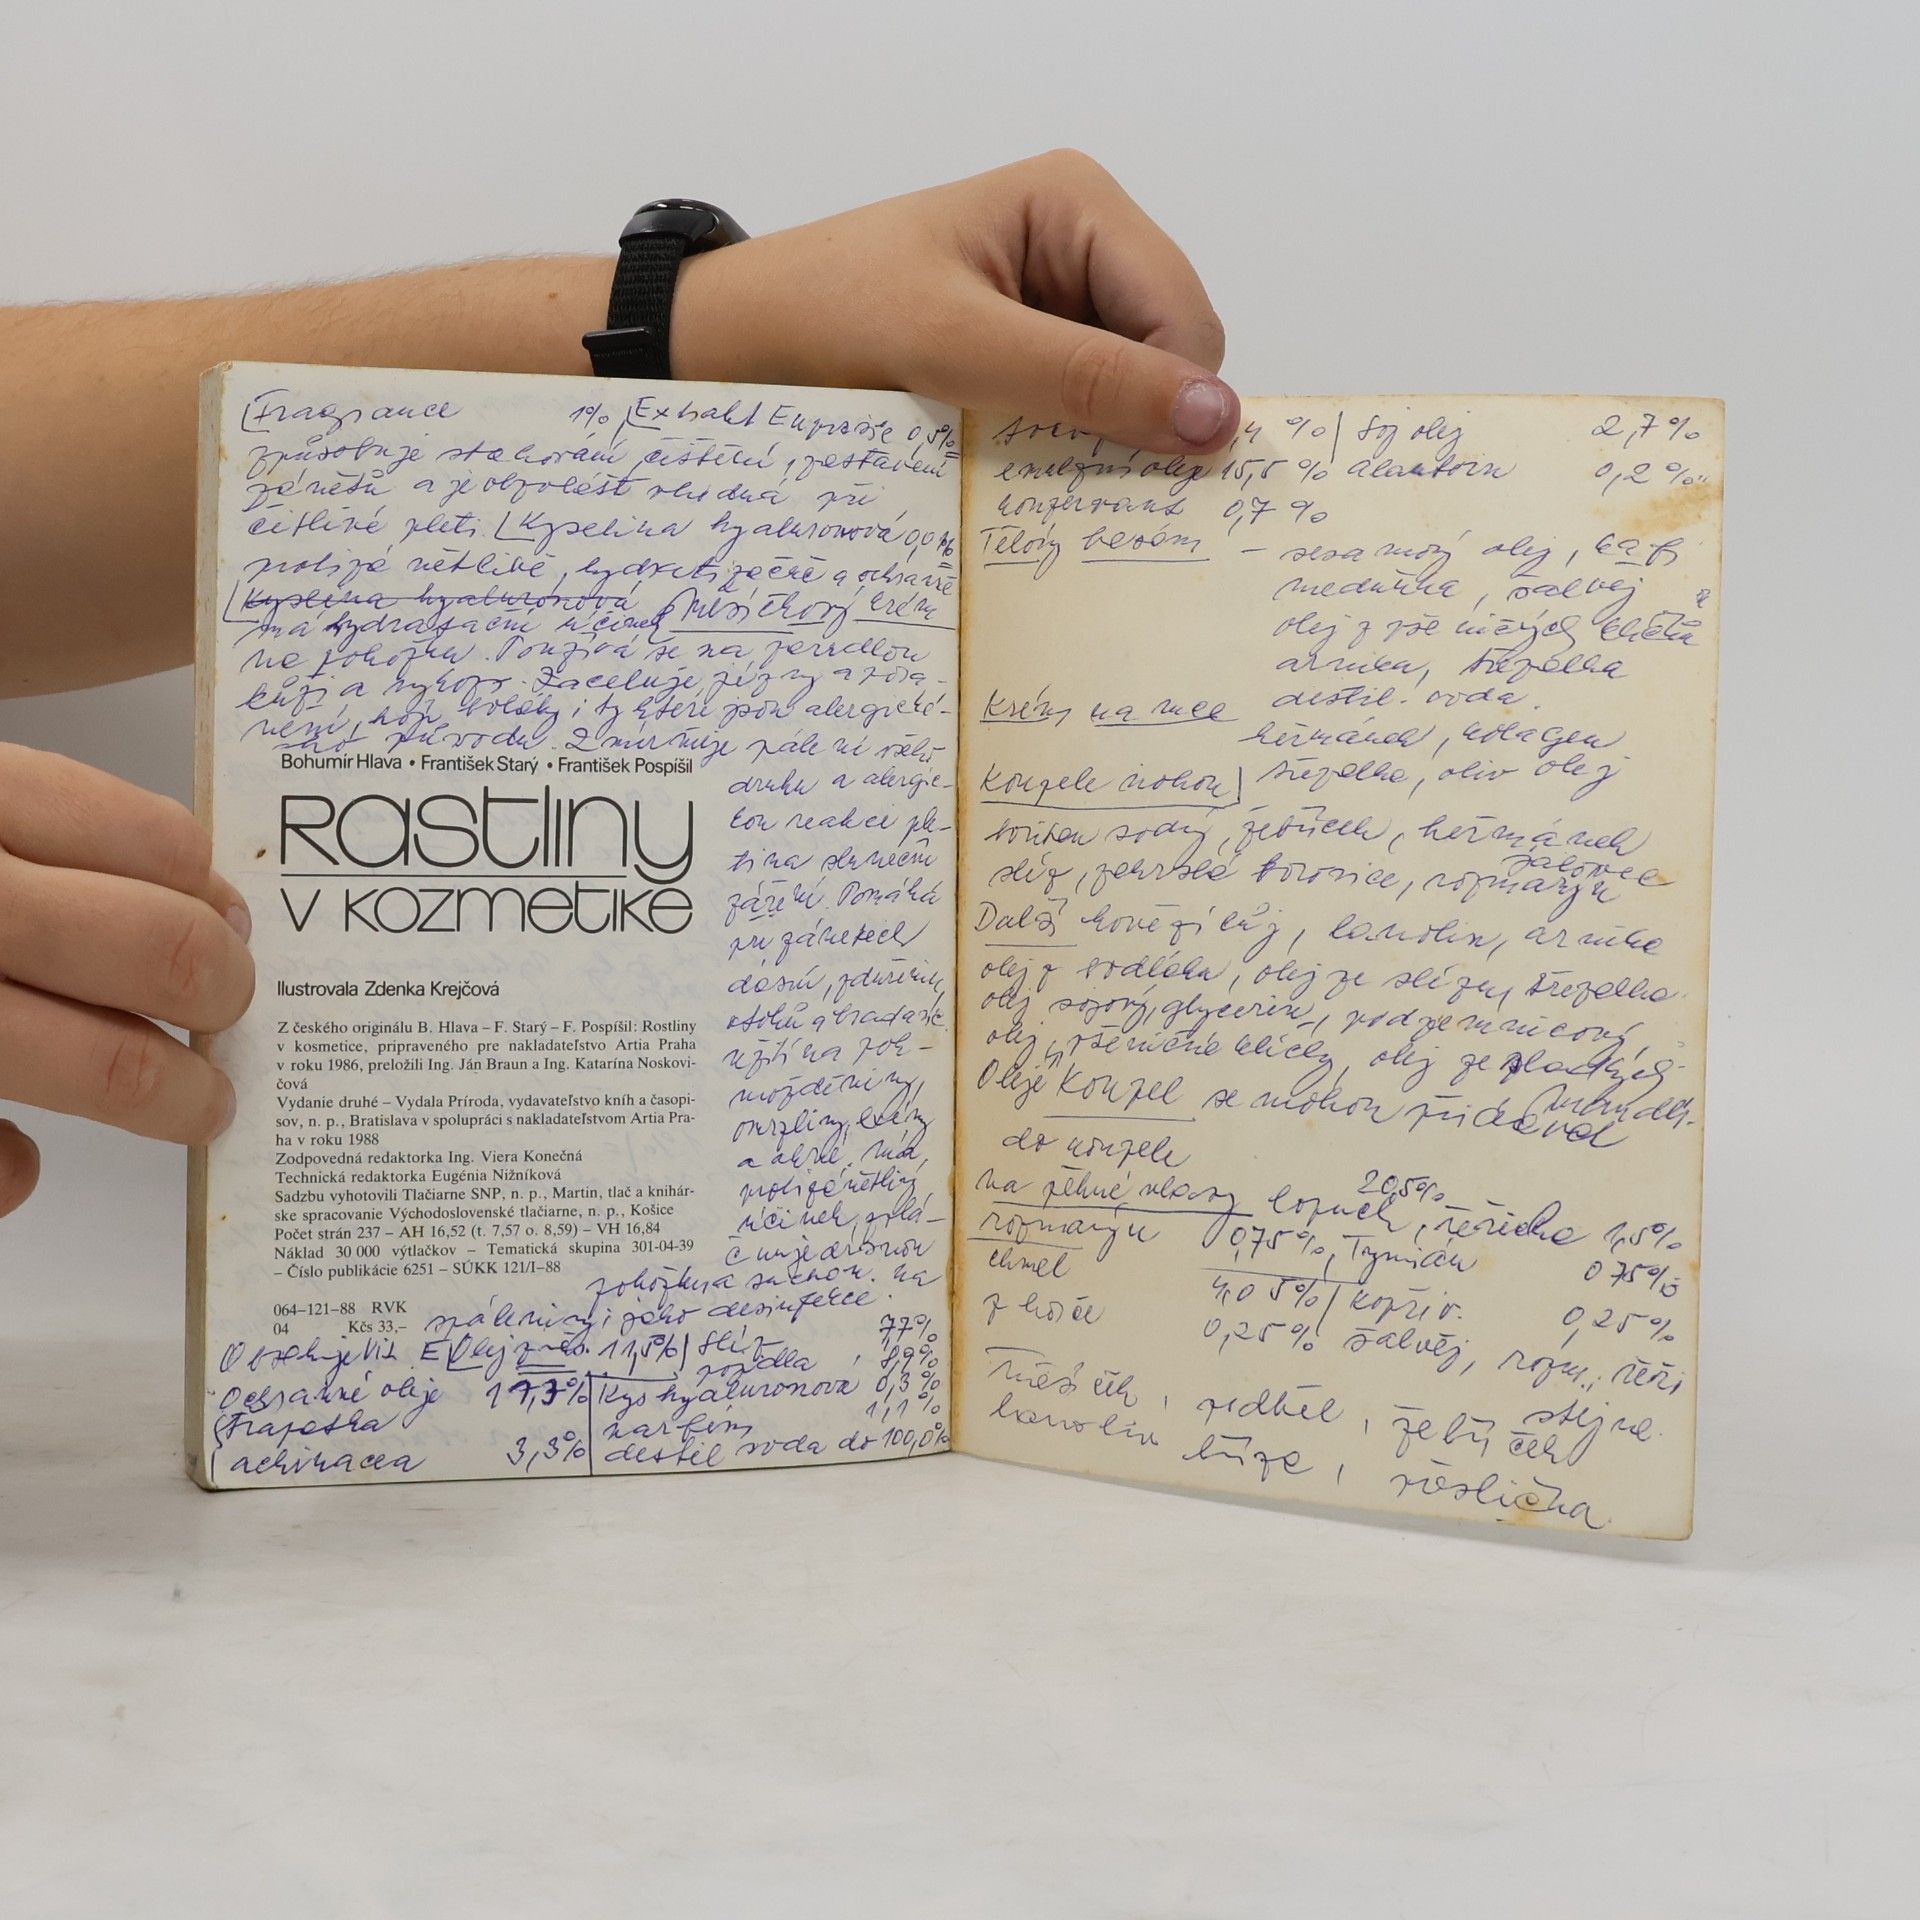 Fragrance 1% Extrakt 0,5%
způsobuje čištění, zastavení
zánětů a je obzvlášť vhodná při
citlivé pleti. Kyselina hyaluronová
protizánětlivé, hydratizačně a ochranně
Kyselina hyaluronová Měsíčkový krém
má hydratační účinek
na pokožku. Používá se na
kůži a Zaceluje jizvy a pora-
nění, hojí i ty které jsou alergické-
ho původu. Zmírňuje pálení všeho
druhu a alergic-
kou reakci ple-
ti na sluneční
záření. Pomáhá
při zánětech
dásní,
otoků a bradavic.
užití na poh-
možděniny,
omrzliny,
a akné. Má
protizánětlivý
účinek, zvlá-
čňuje drsnou
pokožku a suchou. na
spáleniny i jako desinfekce.
Bohumír Hlava • František Starý • František Pospíšil
Rastliny
v kozmetike
Ilustrovala Zdenka Krejčová
Z českého originálu B. Hlava – F. Starý – F. Pospíšil: Rostliny
v kosmetice, pripraveného pre nakladateľstvo Artia Praha
v roku 1986, preložili Ing. Ján Braun a Ing. Katarína Noskovi-
čová
Vydanie druhé – Vydala Príroda, vydavateľstvo kníh a časopi-
sov, n. p., Bratislava v spolupráci s nakladateľstvom Artia Pra-
ha v roku 1988
Zodpovedná redaktorka Ing. Viera Konečná
Technická redaktorka Eugénia Nižníková
Sadzbu vyhotovili Tlačiarne SNP, n. p., Martin, tlač a knihár-
ske spracovanie Východoslovenské tlačiarne, n. p., Košice
Počet strán 237 – AH 16,52 (t. 7,57 o. 8,59) – VH 16,84
Náklad 30 000 výtlačkov – Tematická skupina 301-04-39
– Číslo publikácie 6251 – SÚKK 121/I–88
064–121–88 RVK
04 Kčs 33,–
Obsahuje Vit. E Olej 11,5% Sléz 7,7%
Ochranné oleje Kys hyaluronová 0,3%
1,1%
achinacea 3,3% destil voda do 100,0%
,4 % Soj olej 2,7%
emulzní oleje 15,5 % alantoin 0,2 %
konzervant 0,7 %
Tělový balzám – sesamový olej,
meduňka, šalvěj
olej z pšeničných klíčků
arnika, třezalka
destil. voda.
Krém na ruce
heřmánek, kolagen
třezalka, oliv olej
Koupele nohou
sodný, žebříček, heřmánek
jalovec
sléz, borovice, rozmarýn
Další hovězí lůj, lanolin, arnika
olej z bodláku, olej ze slézu, třezalka
olej sojový, glycerin, podzemnicový
olej, pšeničné klíčky, olej ze sladkých
mandlí.
Oleje Koupel se mohou přidávat
do koupele
20,5%
na pěkné vlasy lopuch, řeřicha 1,5%
rozmarýn 0,75%, Tymián 0,75%
chmel 4,05% kopřiv. 0,25%
0,25% šalvěj,
měsíček, podběl, stejně.
lanolin bříza, žebříček
přeslička